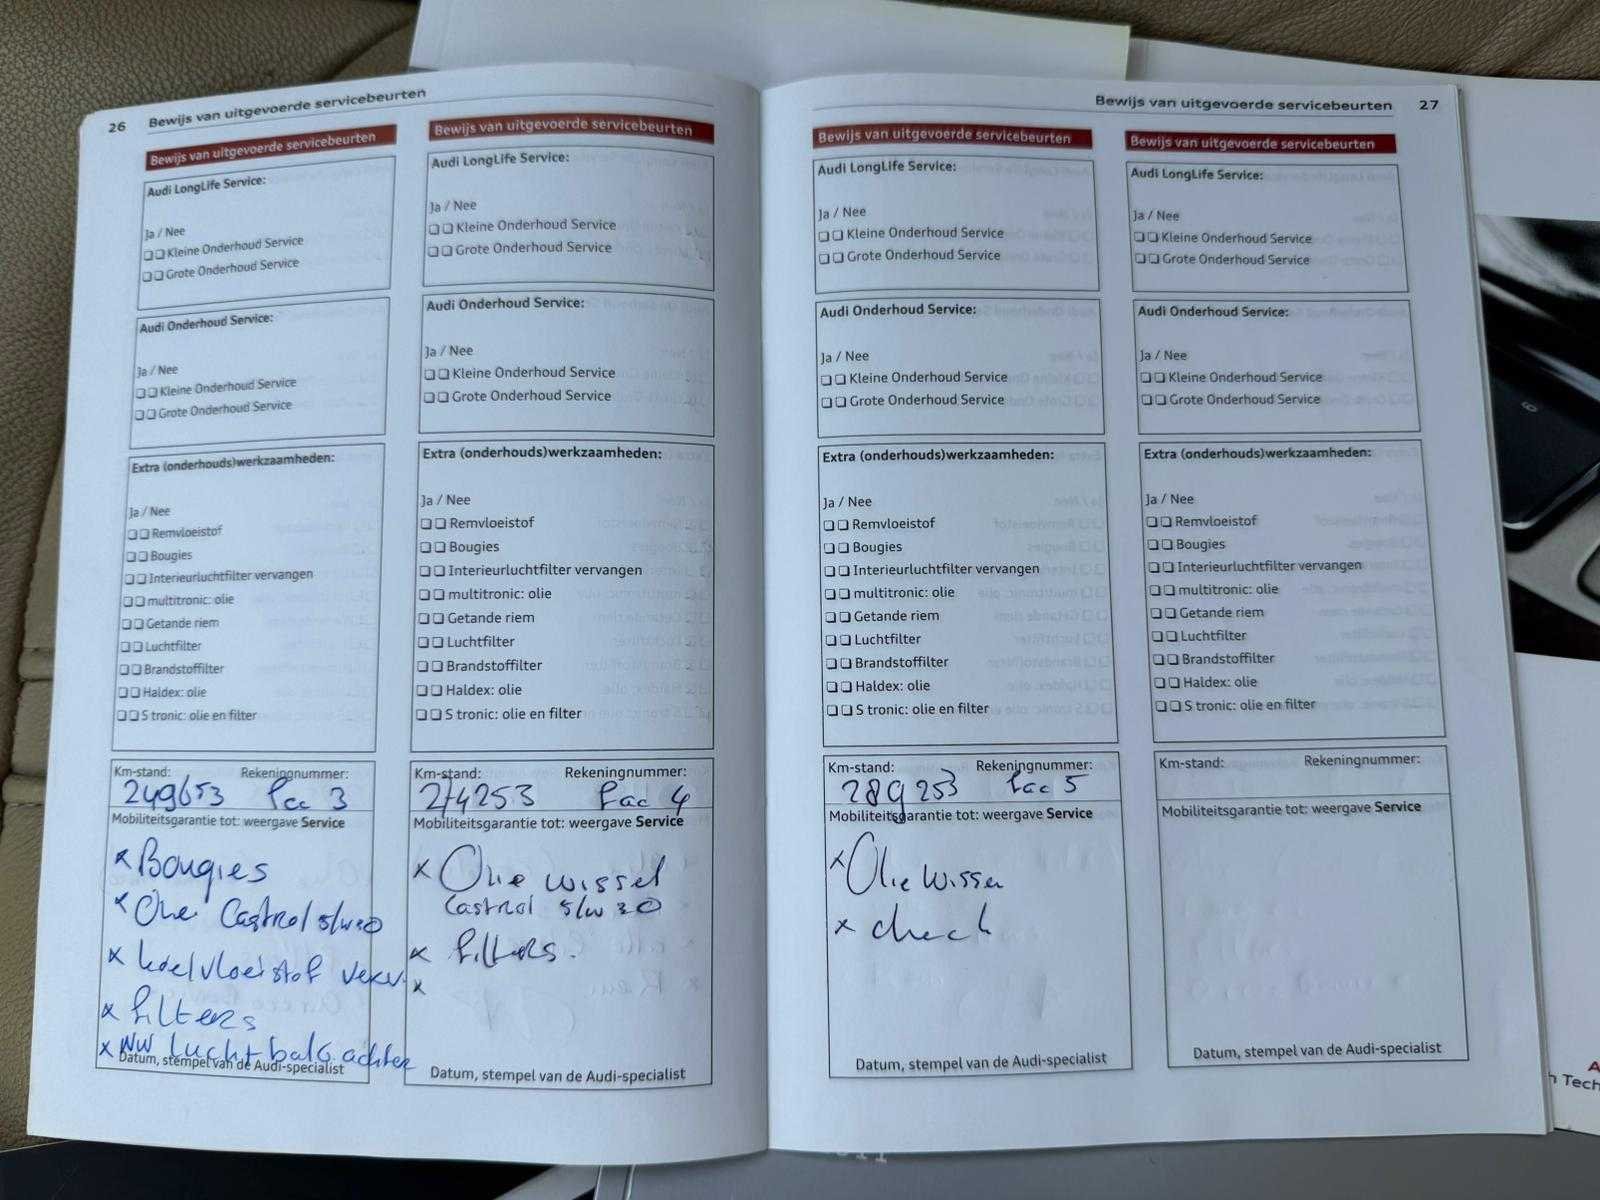 26 Bewijs van uitgevoerde servicebeurten
Bewijs van uitgevoerde servicebeurten
Audi LongLife Service:
Ja / Nee
Kleine Onderhoud Service
Grote Onderhoud Service
Audi Onderhoud Service:
Ja / Nee
Kleine Onderhoud Service
Grote Onderhoud Service
Extra (onderhouds)werkzaamheden:
Ja / Nee
Remvloeistof
Bougies
Interieurluchtfilter vervangen
multitronic: olie
Getande riem
Luchtfilter
Brandstoffilter
Haldex: olie
S tronic: olie en filter
Km-stand: Rekeningnummer:
249653 Fac 3
Mobiliteitsgarantie tot: weergave Service
x Bougies
x Olie Castrol 5/w30
x koelvloeistof verv.
x filters
x NW Luchtbalg achter
Datum, stempel van de Audi-specialist
Bewijs van uitgevoerde servicebeurten
Audi LongLife Service:
Ja / Nee
Kleine Onderhoud Service
Grote Onderhoud Service
Audi Onderhoud Service:
Ja / Nee
Kleine Onderhoud Service
Grote Onderhoud Service
Extra (onderhouds)werkzaamheden:
Ja / Nee
Remvloeistof
Bougies
Interieurluchtfilter vervangen
multitronic: olie
Getande riem
Luchtfilter
Brandstoffilter
Haldex: olie
S tronic: olie en filter
Km-stand: Rekeningnummer:
274253 Fac 4
Mobiliteitsgarantie tot: weergave Service
x Olie wissel
Castrol 5/w30
x filters.
x
Datum, stempel van de Audi-specialist
Bewijs van uitgevoerde servicebeurten 27
Bewijs van uitgevoerde servicebeurten
Audi LongLife Service:
Ja / Nee
Kleine Onderhoud Service
Grote Onderhoud Service
Audi Onderhoud Service:
Ja / Nee
Kleine Onderhoud Service
Grote Onderhoud Service
Extra (onderhouds)werkzaamheden:
Ja / Nee
Remvloeistof
Bougies
Interieurluchtfilter vervangen
multitronic: olie
Getande riem
Luchtfilter
Brandstoffilter
Haldex: olie
S tronic: olie en filter
Km-stand: Rekeningnummer:
289253 Fac 5
Mobiliteitsgarantie tot: weergave Service
x Olie wissel
x check
Datum, stempel van de Audi-specialist
Bewijs van uitgevoerde servicebeurten
Audi LongLife Service:
Ja / Nee
Kleine Onderhoud Service
Grote Onderhoud Service
Audi Onderhoud Service:
Ja / Nee
Kleine Onderhoud Service
Grote Onderhoud Service
Extra (onderhouds)werkzaamheden:
Ja / Nee
Remvloeistof
Bougies
Interieurluchtfilter vervangen
multitronic: olie
Getande riem
Luchtfilter
Brandstoffilter
Haldex: olie
S tronic: olie en filter
Km-stand: Rekeningnummer:
Mobiliteitsgarantie tot: weergave Service
Datum, stempel van de Audi-specialist